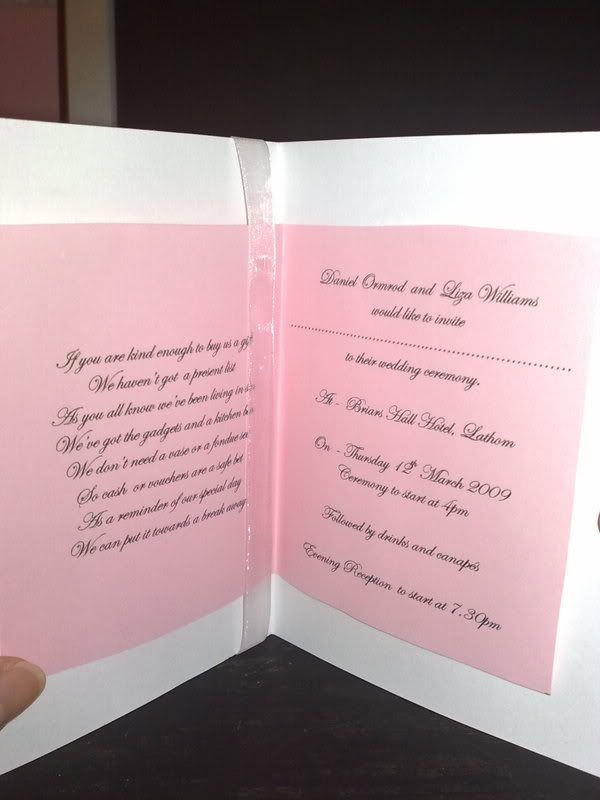 If you are kind enough to buy us a
We haven't got a present list
As you all know we've been living in
We've got the gadgets and a kitchen
We don't need a vase or a fondue
So cash or vouchers are a safe bet
As a reminder of our special day
We can put it towards a break away
Daniel Ormrod and Liza Williams
would like to invite
..................................................
to their wedding ceremony.
At - Briars Hall Hotel, Lathom
On - Thursday 12th March 2009
Ceremony to start at 4pm
Followed by drinks and canapés
Evening Reception to start at 7.30pm